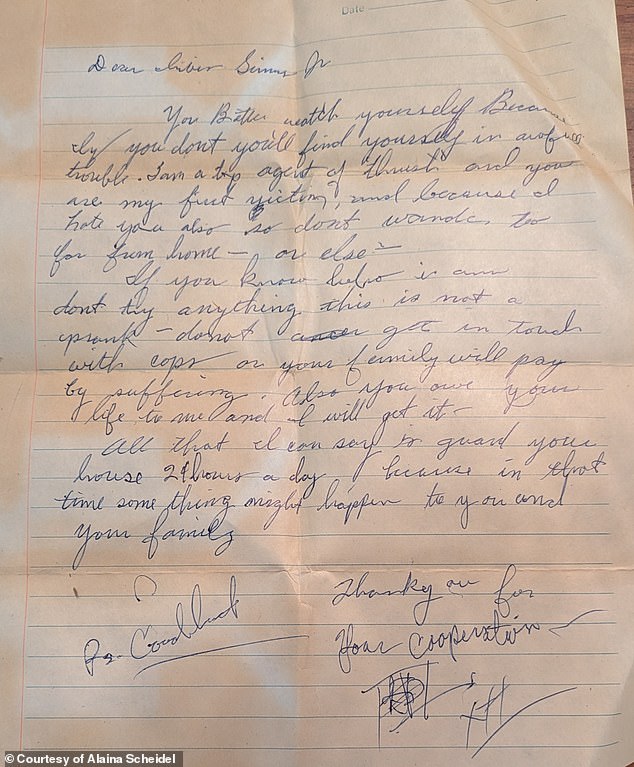 Date
Dear Simms Jr
You Better watch yourself Because
if you dont you'll find yourself in
trouble. I am a top agent of thrush and you
are my first victim, and because I
hate you also so dont too
far from home - or else -
If you know is
dont try anything this is not a
prank - donot get in touch
with cops or your family will pay
by suffering. Also you owe your
life to me and I will get it -
All that I can say is guard your
house 24 hours a day because in that
time some thing might happen to you and
your family
Thankyou for
Your Cooperation
Ps. Good luck
Courtesy of Alaina Scheidel